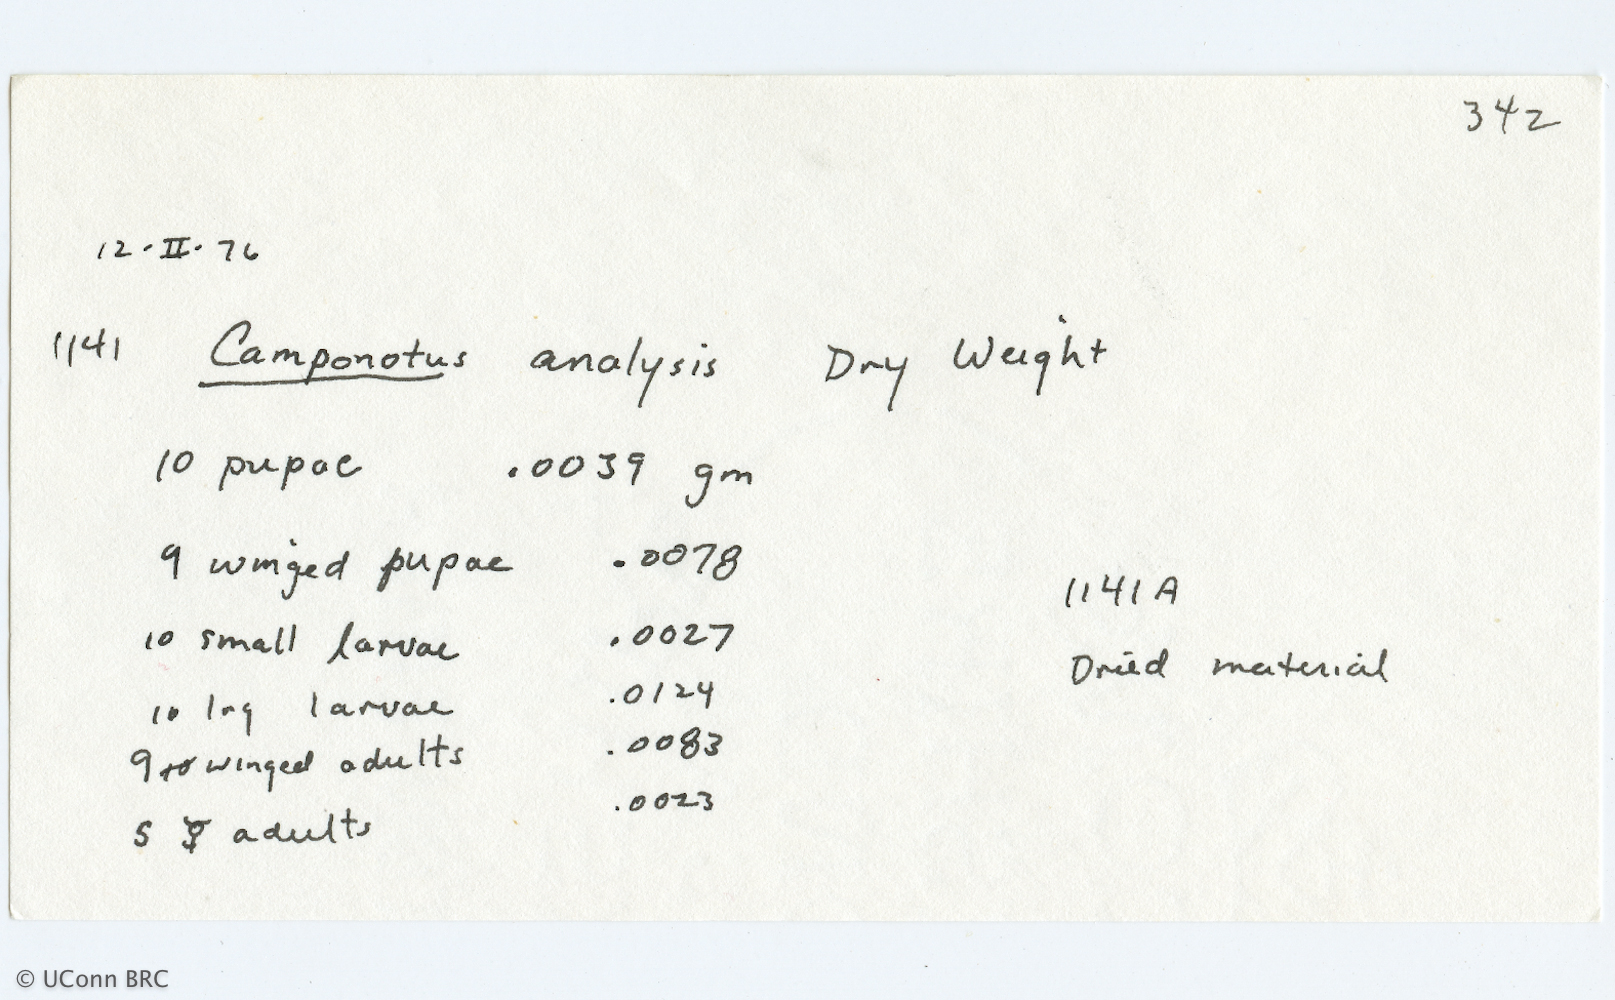 342
12·II·76
1141 Camponotus analysis Dry Weight
10 pupae .0039 gm
9 winged pupae .0078
1141A
10 small larvae .0027
Dried material
10 lrg larvae .0124
9 winged adults .0083
.0023
5 ☿ adults
© UConn BRC